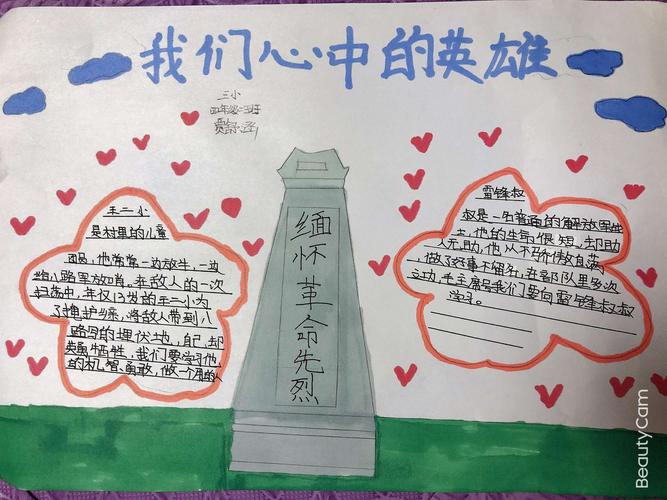 我们心中的英雄
三小
四年级二班
缅怀革命先烈
王二小
是村里的儿童
团员，他常常一边放牛，一边
给八路军放哨，在敌人的一次
扫荡中，年仅13岁的王二小为
了掩护乡亲，将敌人带到八
路军的埋伏土地，自己却
英勇牺牲，我们要学习他
的机智勇敢，做一个
雷锋叔
叔是一名普通的解放军战
士，他的生命很短，却助
人无助，他从不骄傲自满
，做了好事不留名，在部队里多次
立功，毛主席号我们要向雷锋叔叔
学习。
BeautyCam